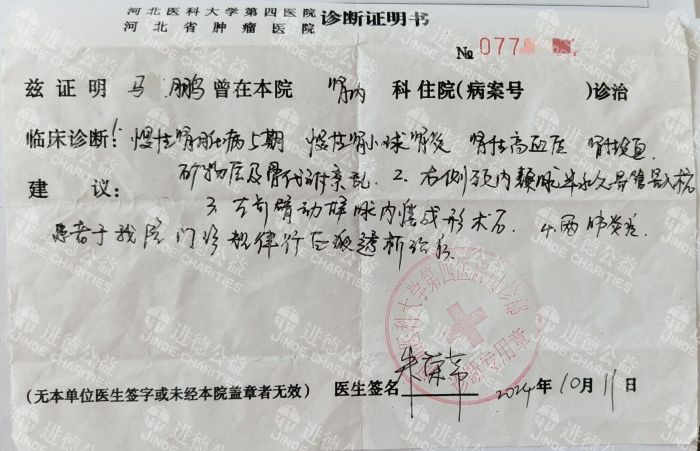 河北医科大学第四医院
河北省肿瘤医院
诊断证明书
№ 077
兹证明 马 鹏 曾在本院 肾内 科住院(病案号 )诊治
临床诊断: 1. 慢性肾脏病5期 慢性肾小球肾炎 肾性高血压 肾性贫血
矿物质及骨代谢紊乱 2. 右侧颈内静脉半永久导管
建 议: 3. 左前臂动静脉内瘘成形术后 4. 两肺炎症
患者于我院门诊规律行血液透析治疗
河北医科大学第四医院门诊部
诊断专用章
(无本单位医生签字或未经本院盖章者无效) 医生签名 2024年10月11日
进德公益
JINDE CHARITIES